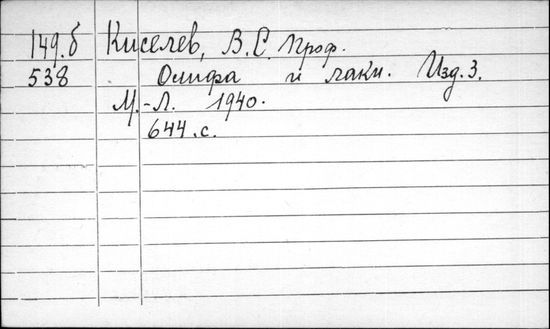 149.б Киселев, В.С. Проф.
538 Олифа и лаки. Изд. 3.
М.-Л. 1940.
644.с.